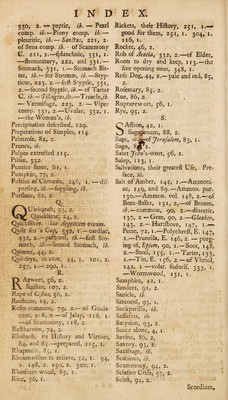 INDEX.
330, 2. — peptic, ib. — Pearl
comp. ib. — Piony comp. ib. —
pleuritic, ib. — Sanctus, 221, 2.
of Sena comp. ib. — of Scammony
C. 221, 2. — splanchnic, 331, 1.
— sternutatory, 222, and 331. —
Stomach, 331, 1. — Stomach Bir-
te, ib. — for Strumas, ib. — Styp-
tic, 223, 2. — first Styptic, 331,
2. — second Styptic, ib. — of Tartar
C. ib. — Troach, ib.
— Vermifuge, 223, 2. — Viper
comp. 331, 2. — Uvular, 332, 1.
— the Woman's, ib.
Precipitation described, 129.
Preparations of Simples, 114.
Primrose, 82, 2.
Prunes, ib.
Pulpe extracted 115.
Prisan, 221.
Pumice stone, 61, 1.
Pumpkin, 77, 2.
Pultice of Cumains, 246, 1. — dis-
persing, ib. — suppling, ib.
Purslane, 82, 2.
Q.
Quinquina, 35, 2.
Quicklime, 24, 2.
Quicksilver. Vide Argentum vivum.
Quilt for a Cap, 332, 1. — cardiac,
332, 2. — first Stomach, ib. — second Stomach, ib.
Quince, 44, 2.
Quinces, to stew, 44, 2. 101, 2.
257, 1. — 290, 1.
R.
Ragwort, 56, 2.
Raisins, 107, 2.
Rape of Cystus, 56, 2.
Raspberry, 24, 2.
Resin common, 79, 2. — of Guaia-
cum, 118, 2. — of Jalap, 118, 1.
— of Scammony, 118, 2.
Restharrow, 74, 2.
Rhubarb, its History and Virtues,
84, and 85. — prepared, 115, 2.
Rhapontic, 85, 1.
Rheumatism to relieve, 52, 1. 94,
1. 148, 2. 150, 2. 320, 1.
Rhodium wood, 85, 1.
Rice, 76, 1.
Rickets, their History, 251, 1. —
good for them, 251, 1. 304, 1.
216, 1.
Rocket, 46, 2.
Rob of Acacia, 332, 2. — of Elder,
Roots to dry and keep, 115. — the
five opening ones, 318, 1.
Rose Dog, 44, 2. — pale and red, 85,
2.
Rosemary, 85, 2.
Rue, 86, 2.
Rupturewort, 56, 1.
Rye, 95, 2.
S.
Saffron, 42, 1.
Sagapenum, 88, 2.
Sage, ib. — of Jerusalem, 83, 1.
Sago, 88, 2.
Saint John's-wort, 56, 2.
Salep, 113, 1.
Salivations, their greatest Use, Pre-
face, 20.
Salt of Amber, 145, 1. — Ammoni-
ac, 149, and 89. — Ammon. pur.
130. — Ammon. vol. 148, 2. — of
Bean-stalks, 131, 2. — of Broom,
ib. — common, 90, 2. — diuretic,
137, 2. — Gem, 90, 2. — Glauber,
143, 2. — Hartshorn, 147, 1. —
Petre, 72, 1. — Polychrest, F. 147,
1. — Prunella, E. 146, 2. — purg-
ing of, Epsom, 90, 1. — Soot, 148,
2. — Steel, 155, 1. — Tartar, 133,
1. — Tin, E. 156, 2. — of Vitriol,
142, 1. — volat. sudorif. 333. —
— Wormwood, 131, 1.
Samphire, 42, 1.
Sanders, 91, 2.
Sanicle, ib.
Sarcocol, 93, 1.
Sarsaparilla, ib.
Sassafras, ib.
Satyrion, 93, 2.
Sauce alone, 4, 1.
Savine, 86, 2.
Savory, 93, 2.
Saxifrage, ib.
Scabious, ib.
Scammony, 94, 2.
Sciatica Cress, 57, 2.
Scink, 94, 2.
Scordium,